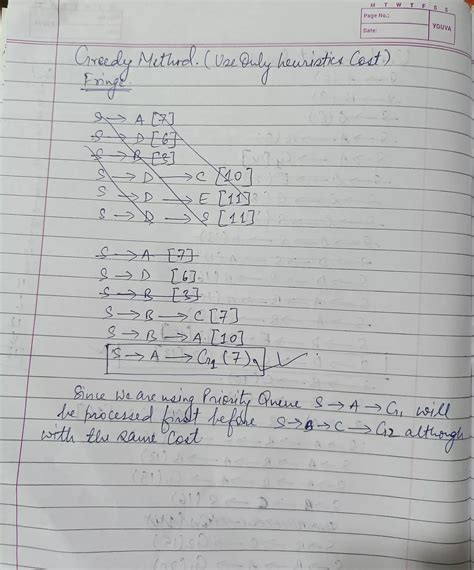 M T W T F S S
Page No.:
Date:
YOUVA
Greedy Method. (Use Only heuristics Cost)
Fringe
S → A [7]
S → D [6]
S → B [3]
S → D → C [10]
S → D → E [11]
S → D → S [11]
S → A [7]
S → D [6]
S → B [3]
S → B → C [7]
S → B → A [10]
S → A → G1 (7)
Since we are using Priority Queue S → A → G1 will
be processed first before S → B → C → G2 although
with the same Cost